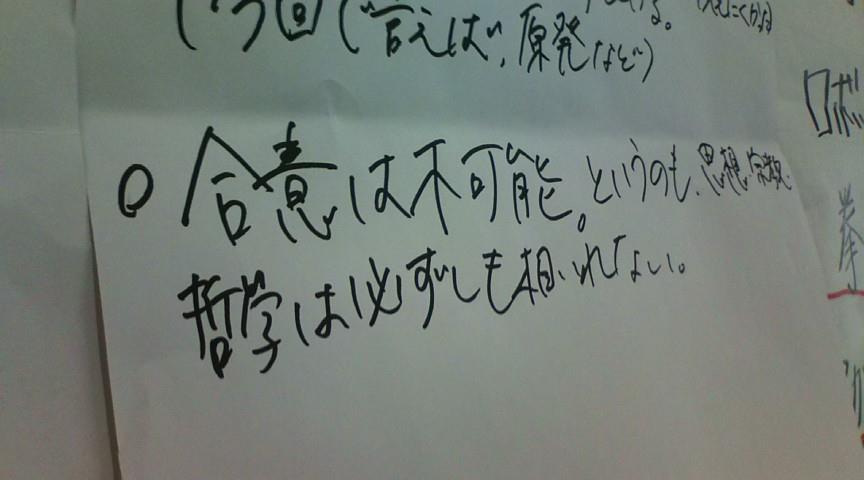 (今回(言えば、原発など)
○ 合意は不可能。というのも、思想、宗教、
哲学は必ずしも相いれない。
ロボ